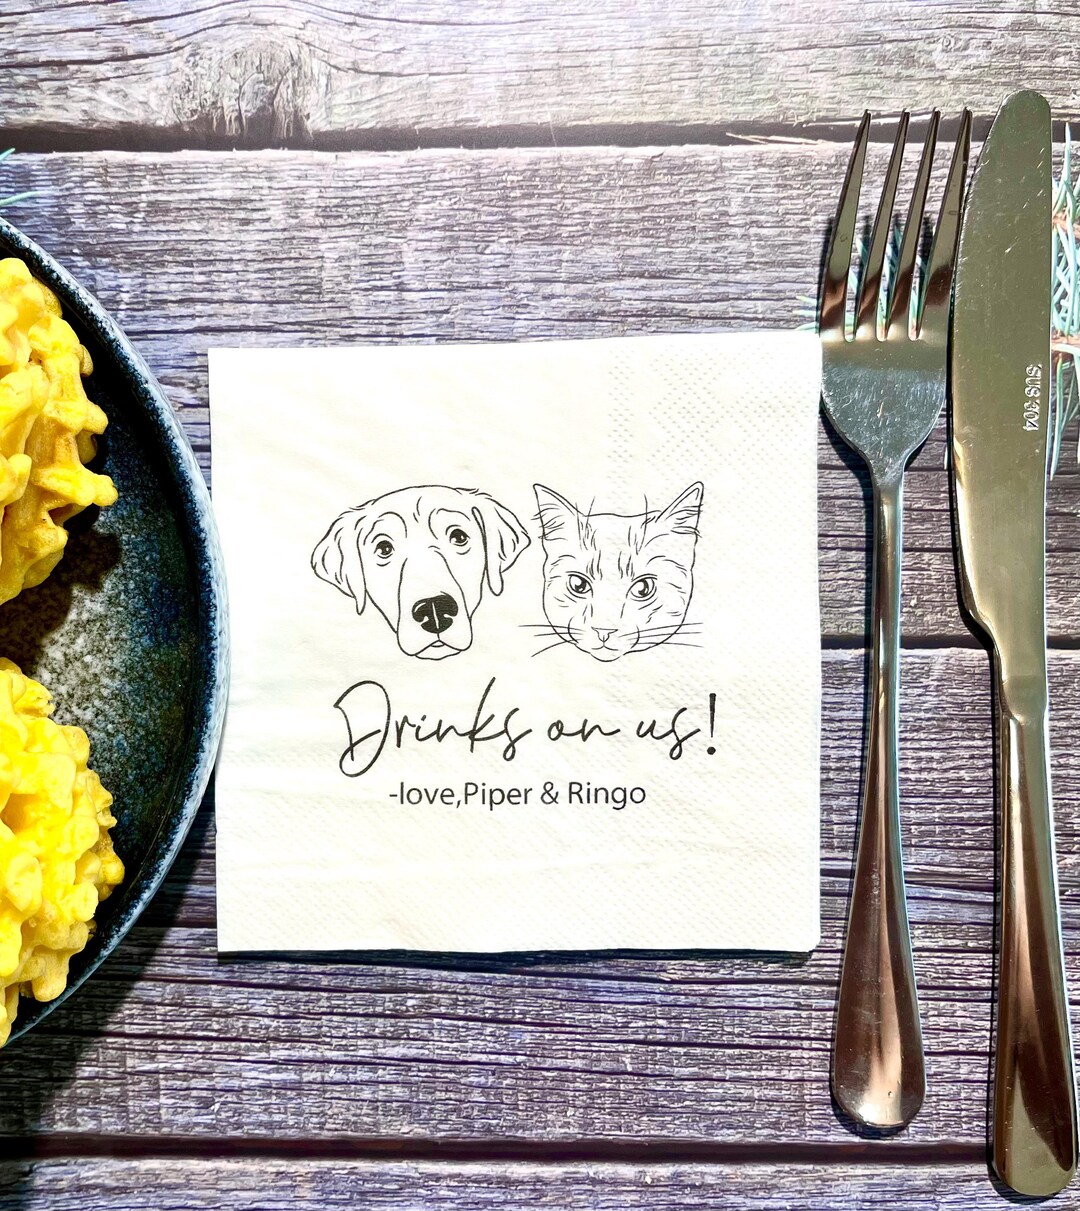 Drinks on us!
-love,Piper & Ringo
SUS 304